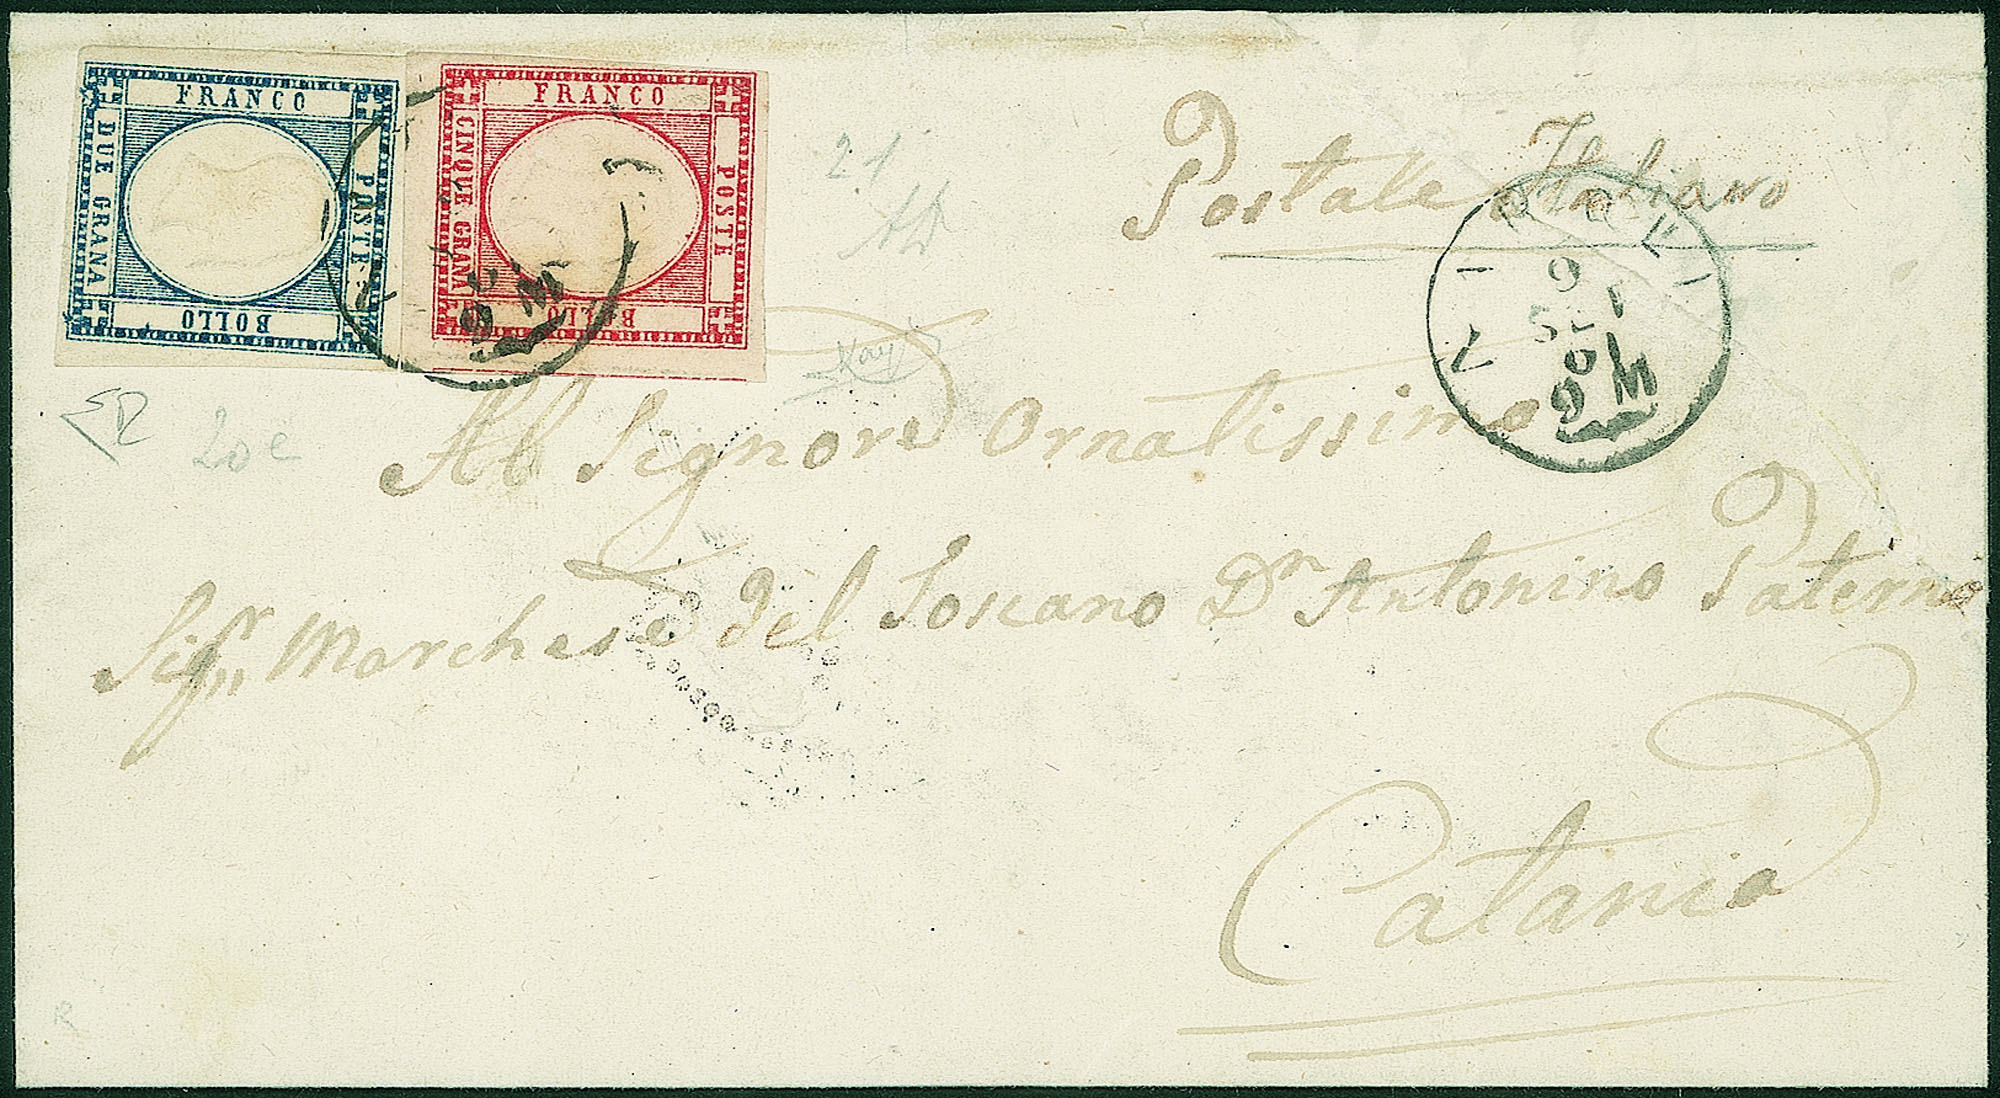 FRANCO
DUE GRANA
POSTE
BOLLO
FRANCO
CINQUE GRANA
POSTE
BOLLO
21
Postale Italiano
Al Signore Ornatissimo
Sigr Marchese del Toscano Dn Antonino Paternò
Catania